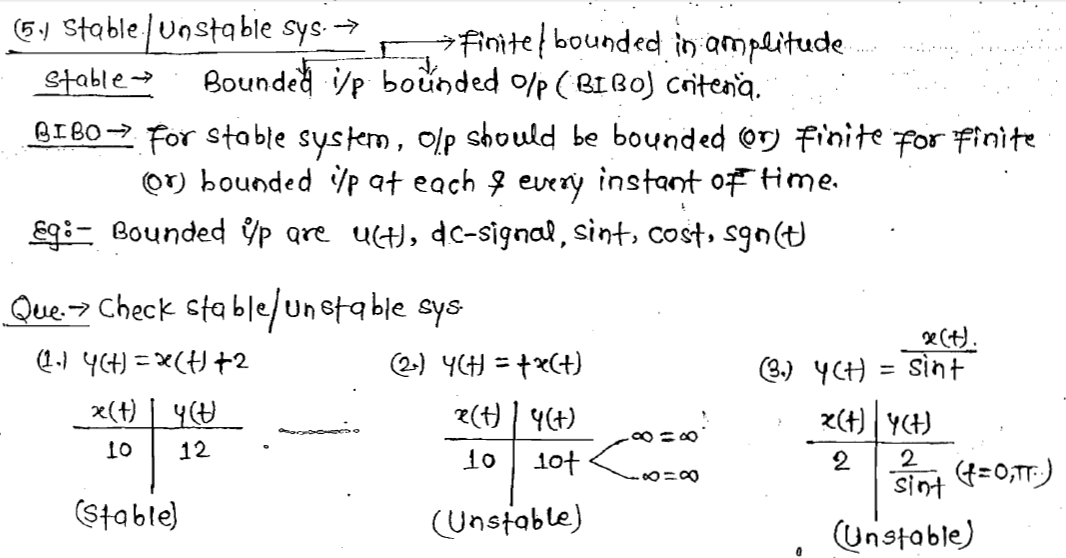 (5.) Stable/Unstable sys. →
→ finite/bounded in amplitude
Stable → Bounded i/p bounded o/p (BIBO) criteria.
BIBO → For stable system, o/p should be bounded (or) finite for finite
(or) bounded i/p at each & every instant of time.
Eg:- Bounded i/p are u(t), dc-signal, sint, cost, sgn(t)
Que. → Check stable/unstable sys
(1.) y(t) = x(t) + 2 (2.) y(t) = t x(t) (3.) y(t) = x(t)/sint
x(t) | y(t) x(t) | y(t) x(t) | y(t)
10 | 12 10 | 10t < ∞ = ∞ 2 | 2/sint (t=0,π)
-∞ = ∞
(Stable) (Unstable) (Unstable)